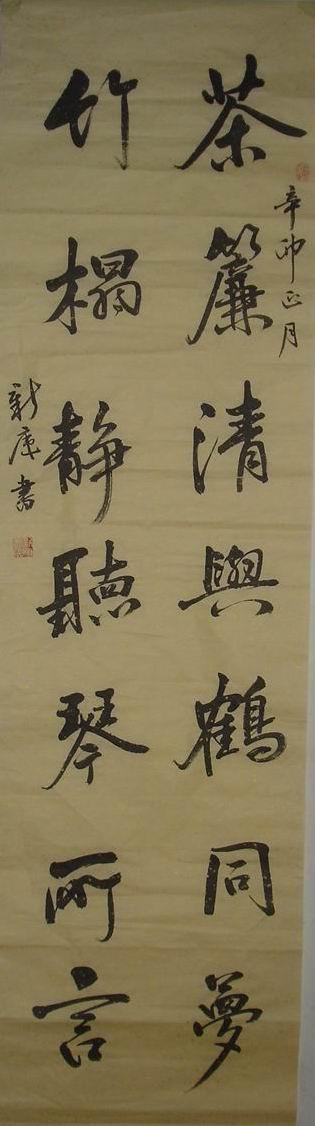 辛卯正月
茶簾清與鶴同夢
竹榻靜聽琴所言
新庚書